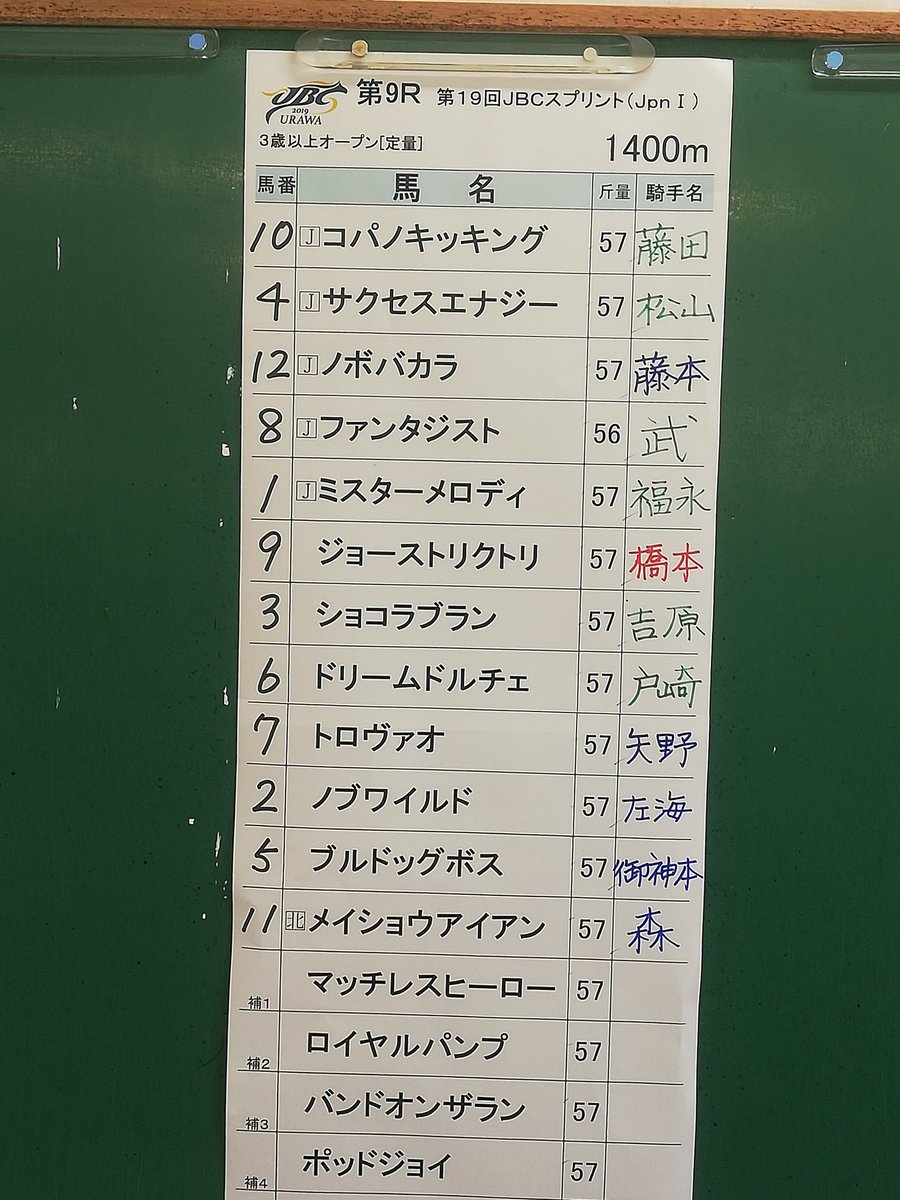 JBC 2019 URAWA 第9R 第19回JBCスプリント(JpnⅠ)
3歳以上オープン[定量] 1400m
馬番 馬名 斤量 騎手名
10 J コパノキッキング 57 藤田
4 J サクセスエナジー 57 松山
12 J ノボバカラ 57 藤本
8 J ファンタジスト 56 武
1 J ミスターメロディ 57 福永
9 ジョーストリクトリ 57 橋本
3 ショコラブラン 57 吉原
6 ドリームドルチェ 57 戸崎
7 トロヴァオ 57 矢野
2 ノブワイルド 57 左海
5 ブルドッグボス 57 御神本
11 北 メイショウアイアン 57 森
補1 マッチレスヒーロー 57
補2 ロイヤルパンプ 57
補3 バンドオンザラン 57
補4 ポッドジョイ 57